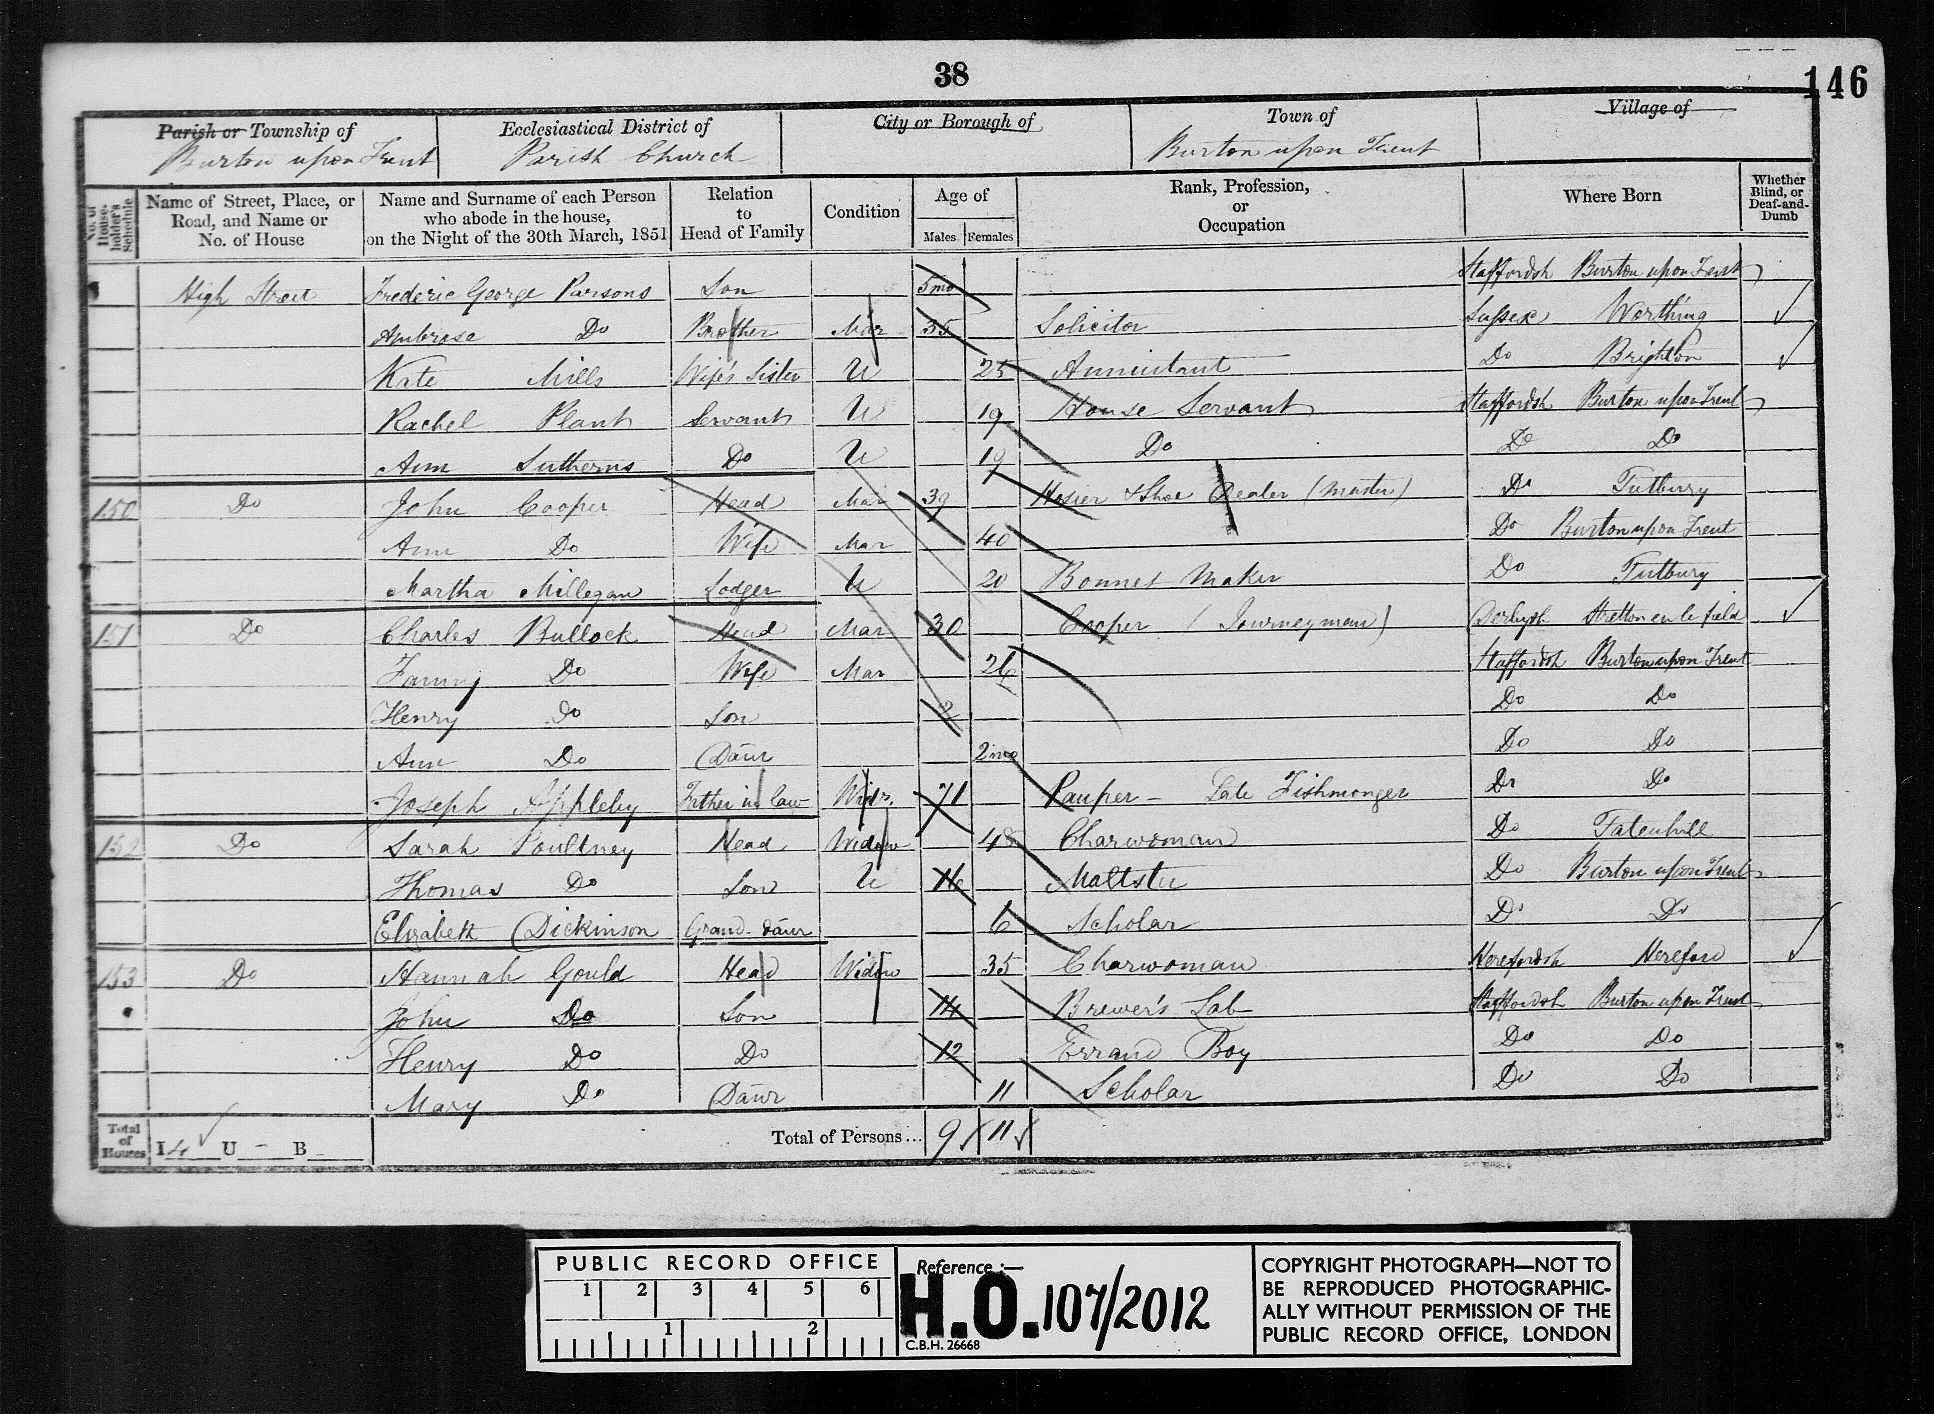 38
146
Parish or Township of
Burton upon Trent
Ecclesiastical District of
Parish Church
City or Borough of
Town of
Burton upon Trent
Village of
No. of House-holder's Schedule
Name of Street, Place, or Road, and Name or No. of House
Name and Surname of each Person who abode in the house, on the Night of the 30th March, 1851
Relation to Head of Family
Condition
Age of
Males
Females
Rank, Profession, or Occupation
Where Born
Whether Blind, or Deaf-and-Dumb
High Street Frederic George Parsons Son 5 mo Staffordsh Burton upon Trent
Ambrose Do Brother Mar 35 Solicitor Sussex Worthing
Kate Mills Wife's Sister U 25 Annuitant Do Brighton
Rachel Plant Servant U 19 House Servant Staffordsh Burton upon Trent
Ann Sutherns Do U 19 Do Do Do
150 Do John Cooper Head Mar 39 Hosier & Shoe Dealer (Master) Do Tutbury
Ann Do Wife Mar 40 Do Burton upon Trent
Martha Millegan Lodger U 20 Bonnet Maker Do Tutbury
151 Do Charles Bullock Head Mar 30 Cooper (Journeyman) Derbysh Stretton en le field
Fanny Do Wife Mar 26 Staffordsh Burton upon Trent
Henry Do Son 2 Do Do
Ann Do Daur 2 mo Do Do
Joseph Appleby Father in law Widr. 71 Pauper - Late Fishmonger Do Do
152 Do Sarah Poultney Head Widow 48 Charwoman Do Tatenhill
Thomas Do Son U 16 Maltster Do Burton upon Trent
Elizabeth Dickinson Grand-daur 6 Scholar Do Do
153 Do Hannah Gould Head Widow 35 Charwoman Herefordsh Hereford
John Do Son 14 Brewer's Lab Staffordsh Burton upon Trent
Henry Do Do 12 Errand Boy Do Do
Mary Do Daur 11 Scholar Do Do
Total of Houses I 4 U - B - Total of Persons... 9 11
PUBLIC RECORD OFFICE
1 2 3 4 5 6
1 2
Reference :—
H.O. 107/2012
C.B.H. 26668
COPYRIGHT PHOTOGRAPH—NOT TO
BE REPRODUCED PHOTOGRAPHIC-
ALLY WITHOUT PERMISSION OF THE
PUBLIC RECORD OFFICE, LONDON